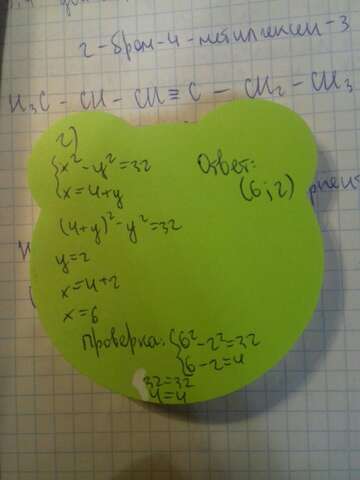 2-бром-4-метилгексен-3
H₃C - CH - CH = C - CH₂ - CH₃
2)
{x² - y² = 32
{x = 4+y
Ответ:
(6; 2)
(4+y)² - y² = 32
y = 2
x = 4+2
x = 6
Проверка: {6² - 2² = 32
{6 - 2 = 4
32 = 32
4 = 4